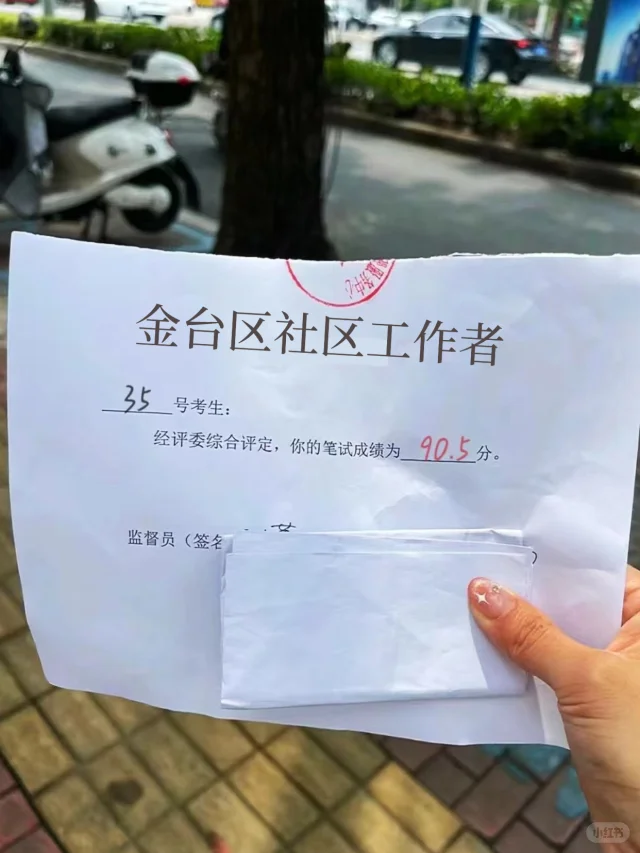 服务中心
金台区社区工作者
35号考生：
经评委综合评定，你的笔试成绩为90.5分。
监督员（签名
小红书